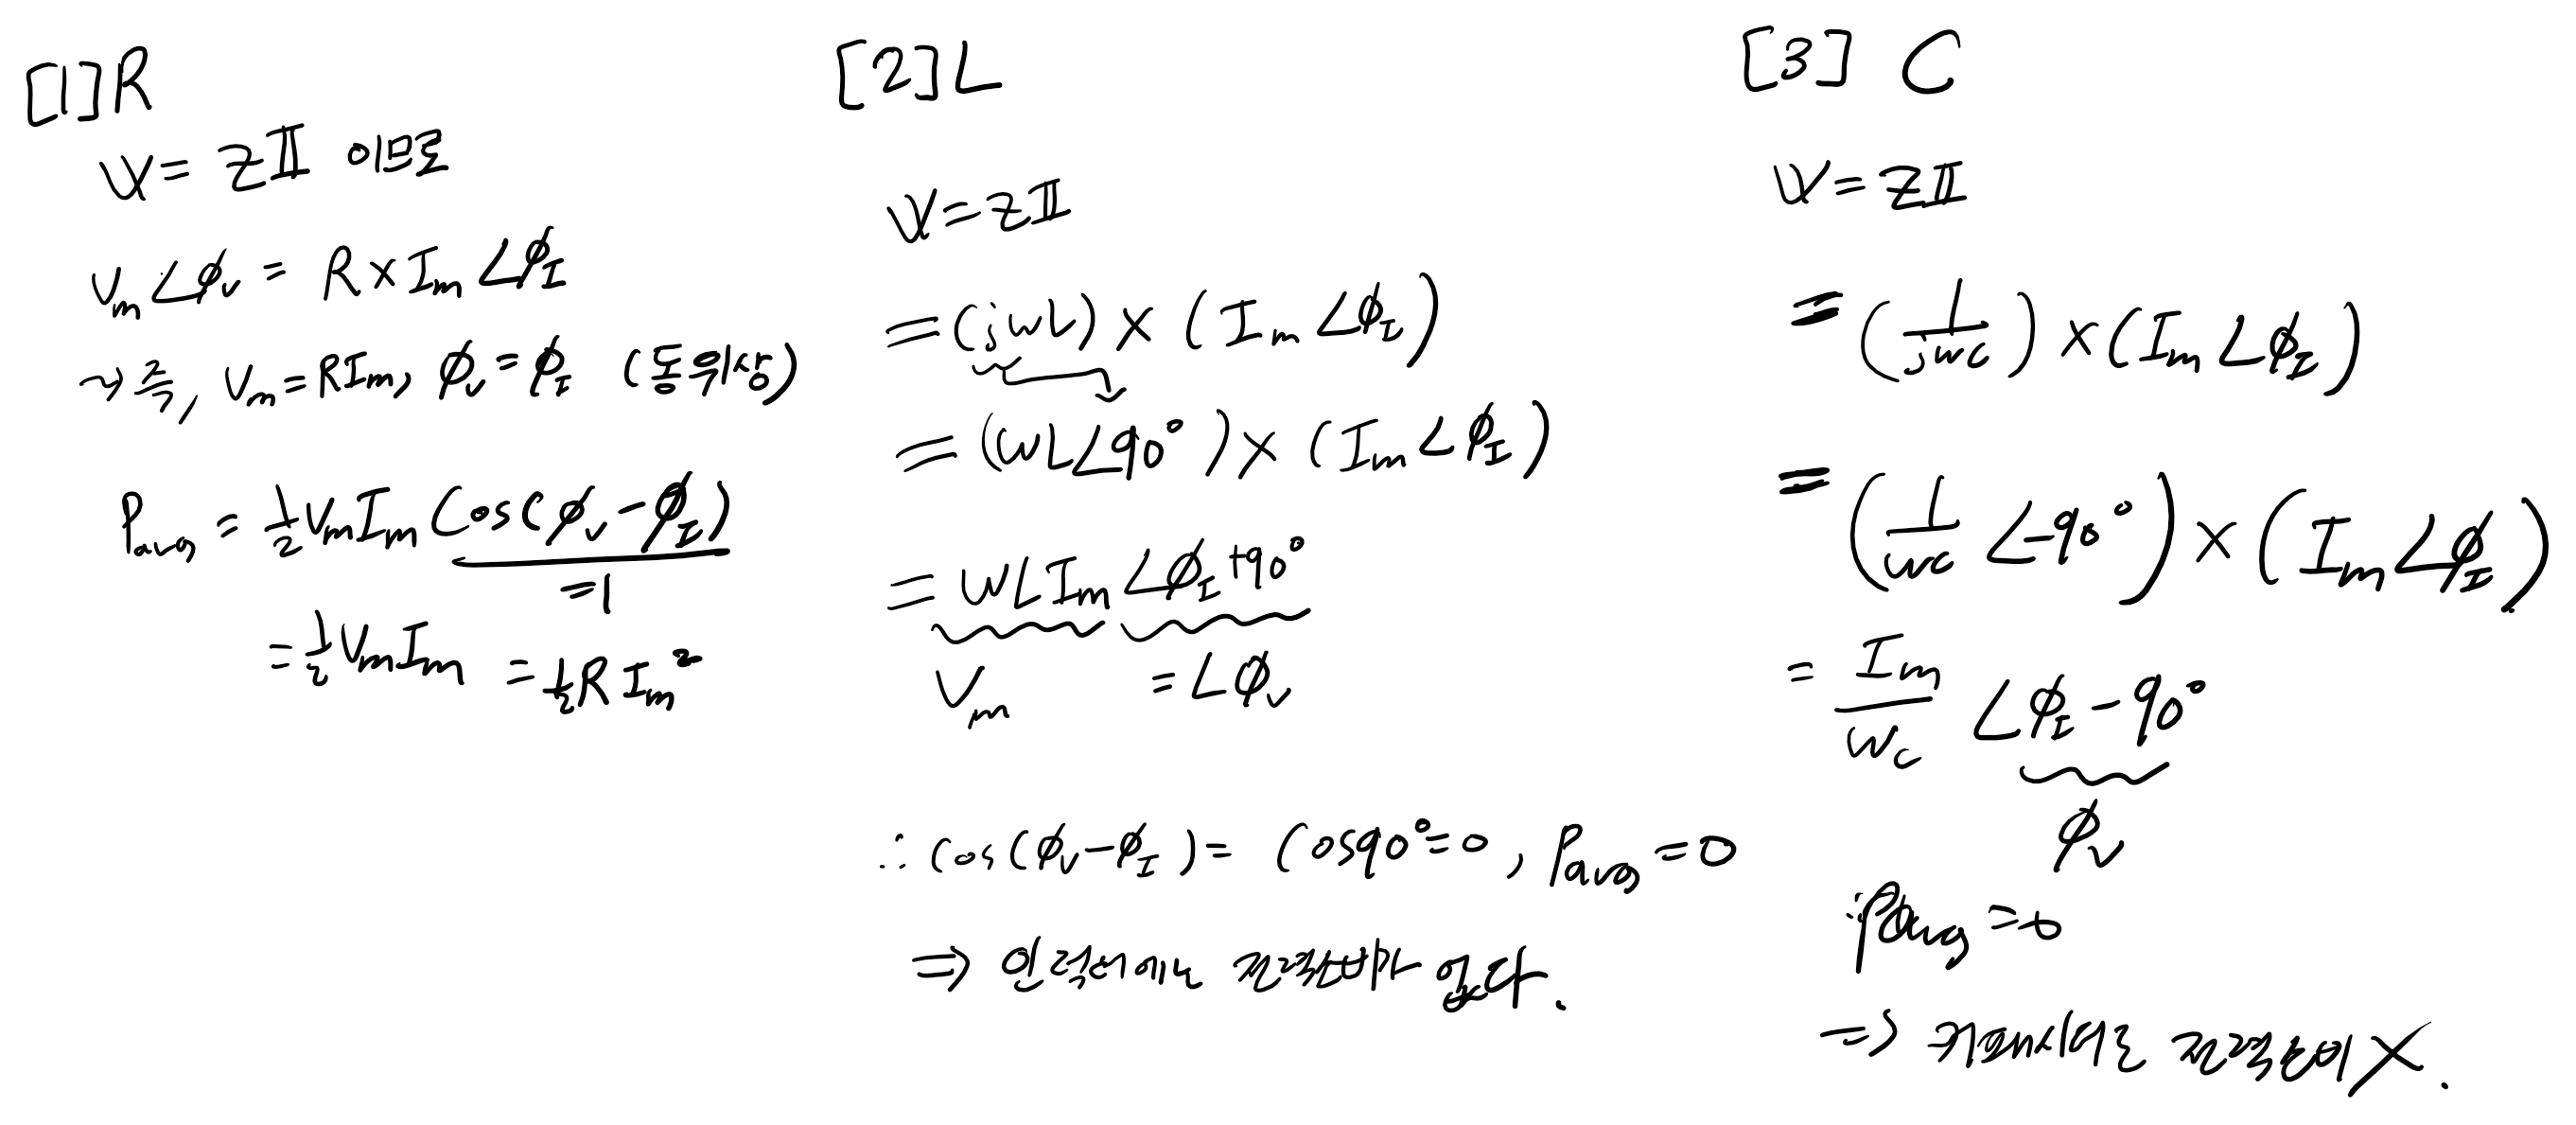 [1] R
V = ZI 이므로
Vm∠ϕv = R × Im∠ϕI
~> 즉, Vm = RIm, ϕv = ϕI (동위상)
Pavg = 1/2 VmIm Cos(ϕv - ϕI)
=1
= 1/2 VmIm = 1/2 R Im²
[2] L
V = ZI
= (jwL) × (Im∠ϕI)
= (wL∠90°) × (Im∠ϕI)
= wLIm∠ϕI+90°
Vm = ∠ϕv
∴ Cos(ϕv-ϕI) = Cos90°=0, Pavg = 0
⇒ 인덕터에는 전력소비가 없다.
[3] C
V = ZI
= (1/jwc) × (Im∠ϕI)
= (1/wc ∠-90°) × (Im∠ϕI)
= Im/wc ∠ϕI - 90°
ϕv
∴ Pavg = 0
⇒ 커패시터는 전력소비 X.